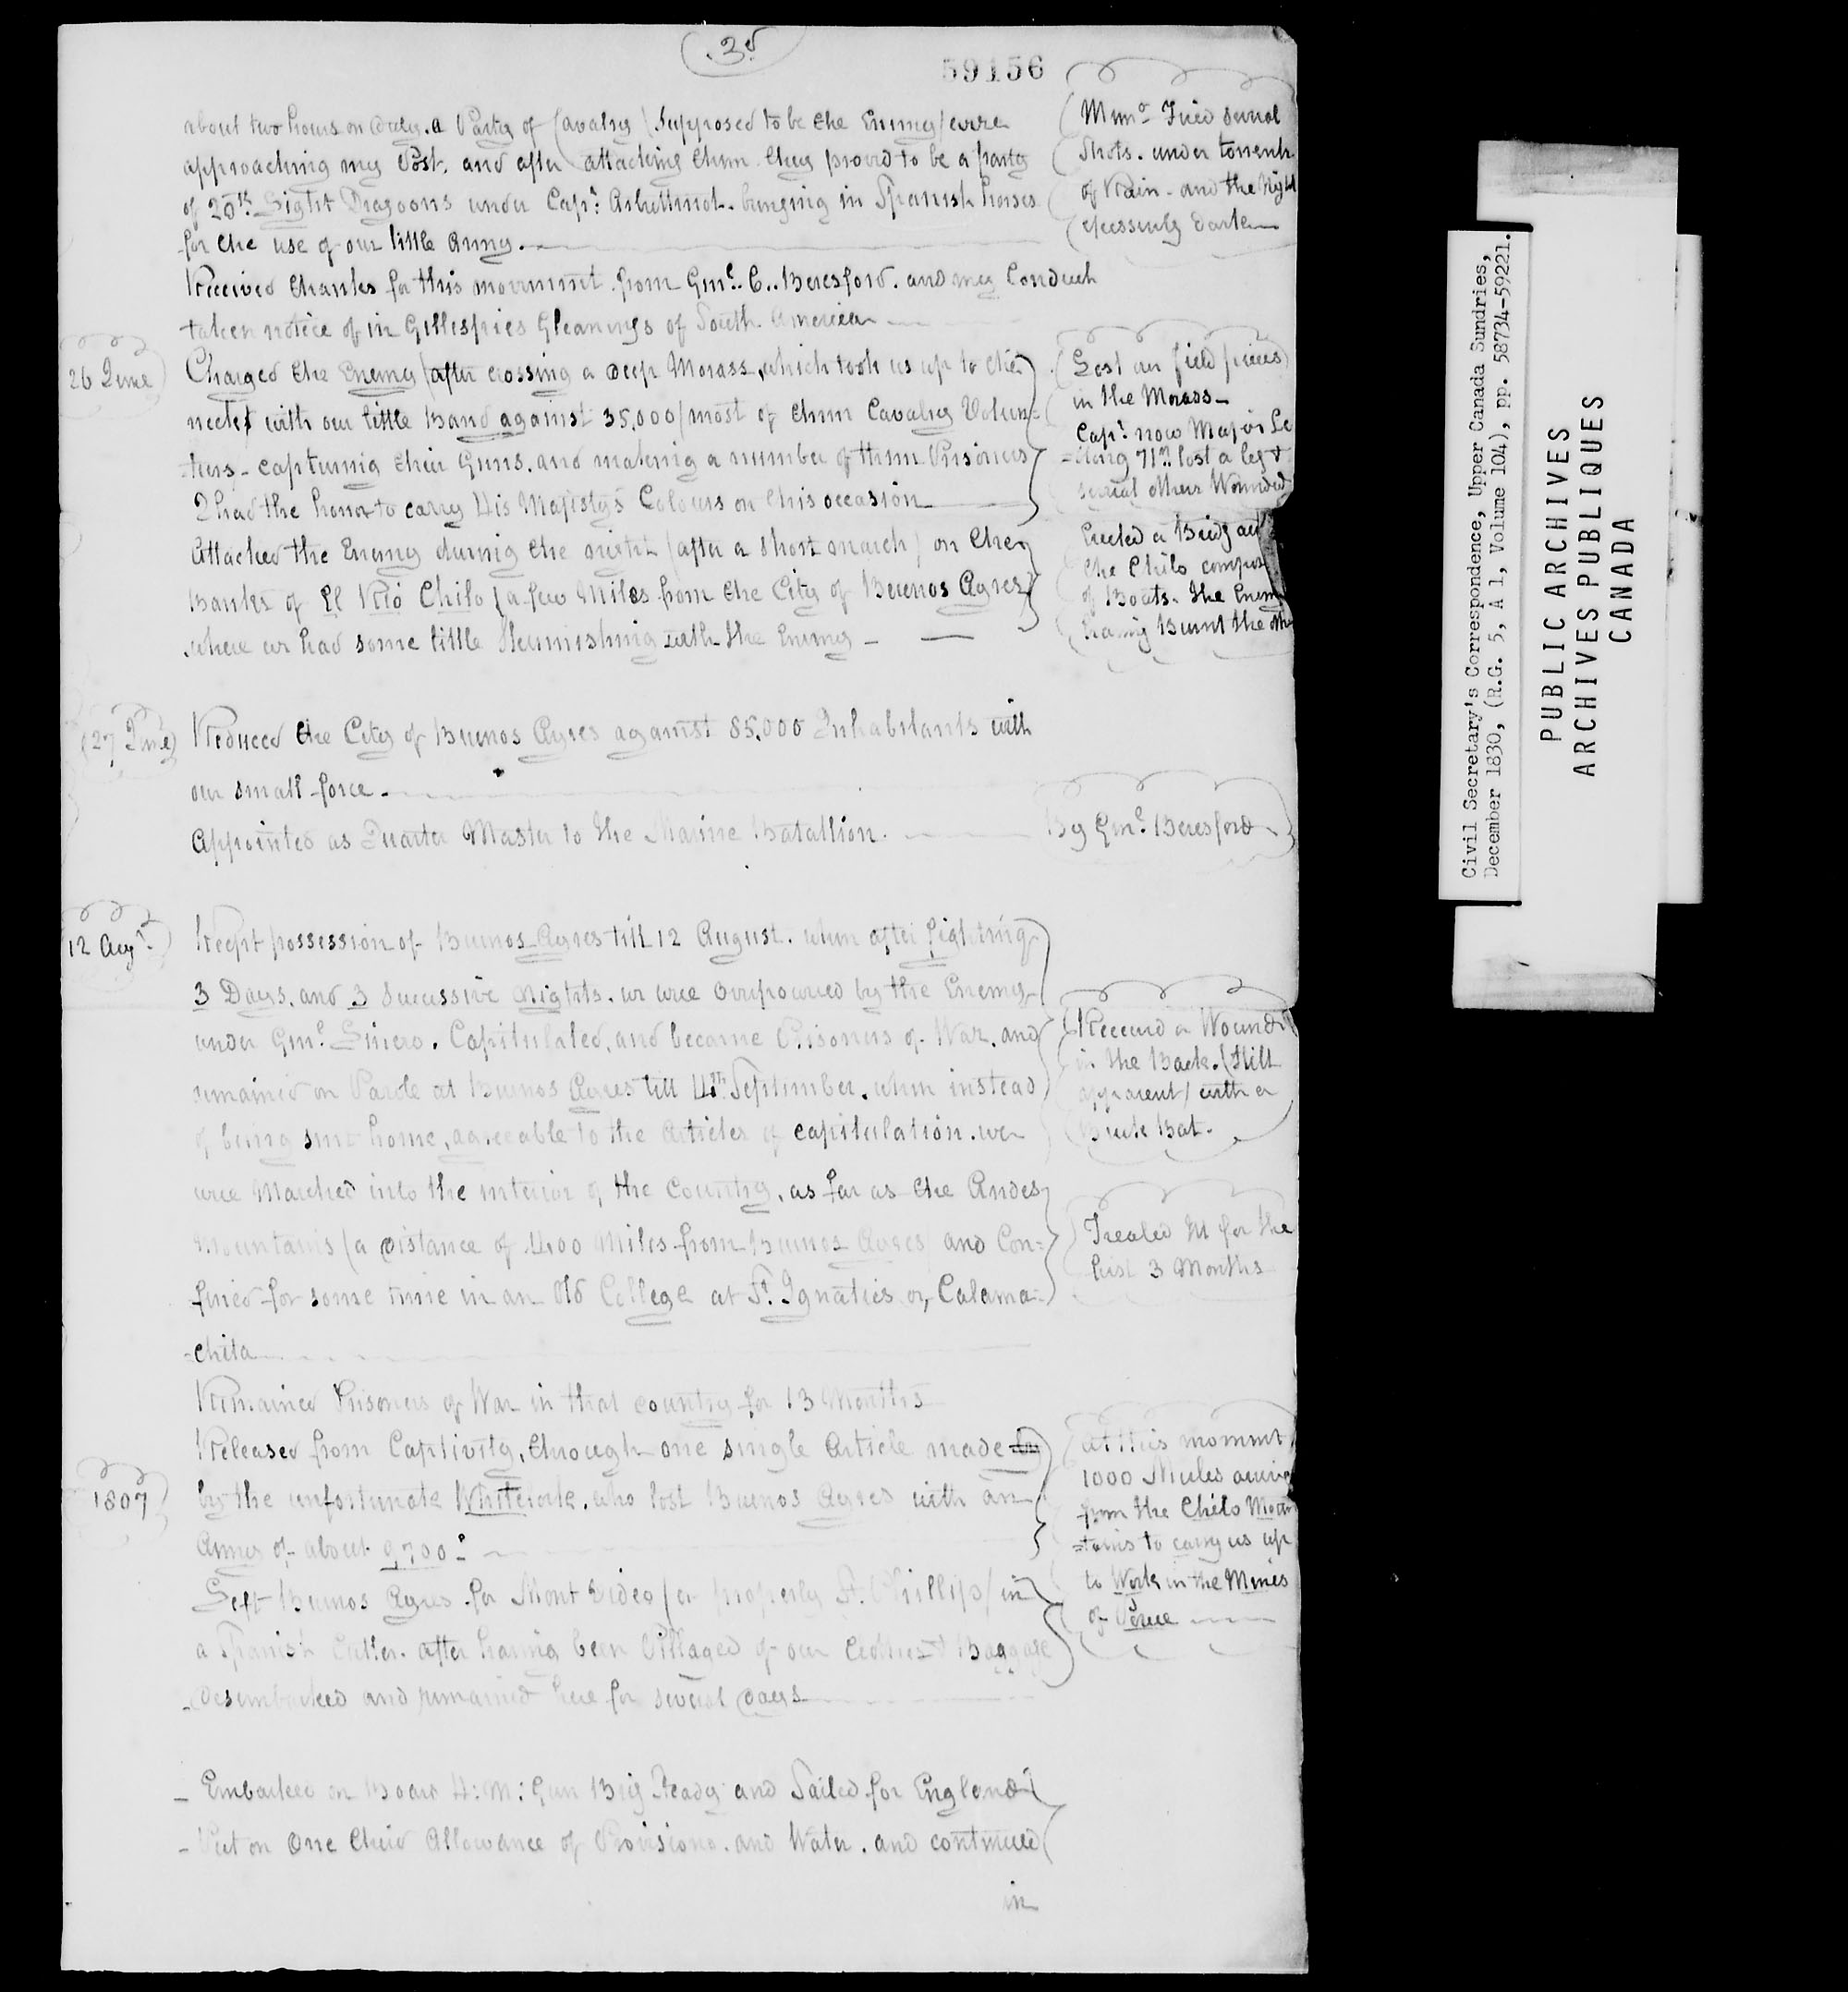 3d
59156
about two hours on duty. a Party of Cavalry (supposed to be the Enemy) were
approaching my Post. and after attacking them they proved to be a party
of 20th Light Dragoons under Capn: Arbuthnot. bringing in Spanish horses
for the use of our little Army.
Mimo. Fired several
Shots. under torrents
of Rain - and the Night
excessively dark
Received thanks for this movement from Genl. C.. Beresford. and my Conduct
taken notice of in Gillespies Gleanings of South America
26 June
Charged the Enemy (after crossing a deep Morass, which took us up to the
necks with our little Band against 35,000/most of them Cavalry Volun=
=teers - capturing their Guns. and making a number of them Prisoners
I had the honor to carry His Majesty's Colours on this occasion
Lost our field pieces
in the Morass -
Capn: now Major Le
=itong 71st. lost a leg &
several others Wounded
Attacked the Enemy during the night (after a short march) on the
Banks of El Rio Chilo (a few Miles from the City of Buenos Ayres)
where we had some little Skirmishing with the Enemy -
Erected a Bridg
the Chilo compos
of Boats. the Enemy
having Burnt the othe
27 June
Reduced the City of Buenos Ayres against 85,000 Inhabitants with
our small force -
Appointed as Quarter Master to the Marine Batallion.
By Genl. Beresford
12 Augt.
Keept possession of Buenos Ayres till 12 August. when after fighting
3 Days, and 3 successive Nights. we were overpowered by the Enemy
under Genl. Liniers. Capitulated, and became Prisoners of War, and
remained on Parole at Buenos Ayres till 4th. September. when instead
of being sent home, agreeable to the Articles of capitulation. we
were Marched into the interior of the Country, as far as the Andes
Mountains (a distance of 1400 Miles from Buenos Ayres) and Con=
fined for some time in an Old College at St. Ignatics or, Calama=
=chita
Received a Wound
in the Back. (still
apparent) with a
Brick Bat.
Treated Ill for the
first 3 Months
Remained Prisoners of War in that country for 13 Months
1807
Released from Captivity, through one single Article made
by the unfortunate Whitelock, who lost Buenos Ayres with an
Army of about 9,700 -
at this moment
1000 Mules arrive
from the Chilo Moun
=tains to carry us up
to Work in the Mines
of Perue
Left Buenos Ayres for Mont Video (or properly St. Phillips) in
a Spanish Cutter. after having been Pillaged of our Clothes & Baggage
- Desembarked and remained here for several days
- Embarked on Board H: M: Gun Brig Steady and Sailed for England
- Put on One third Allowance of Provisions. and Water. and continued
in
Civil Secretary's Correspondence, Upper Canada Sundries,
December 1830, (R.G. 5, A 1, Volume 104), pp. 58734-59221.
PUBLIC ARCHIVES
ARCHIVES PUBLIQUES
CANADA